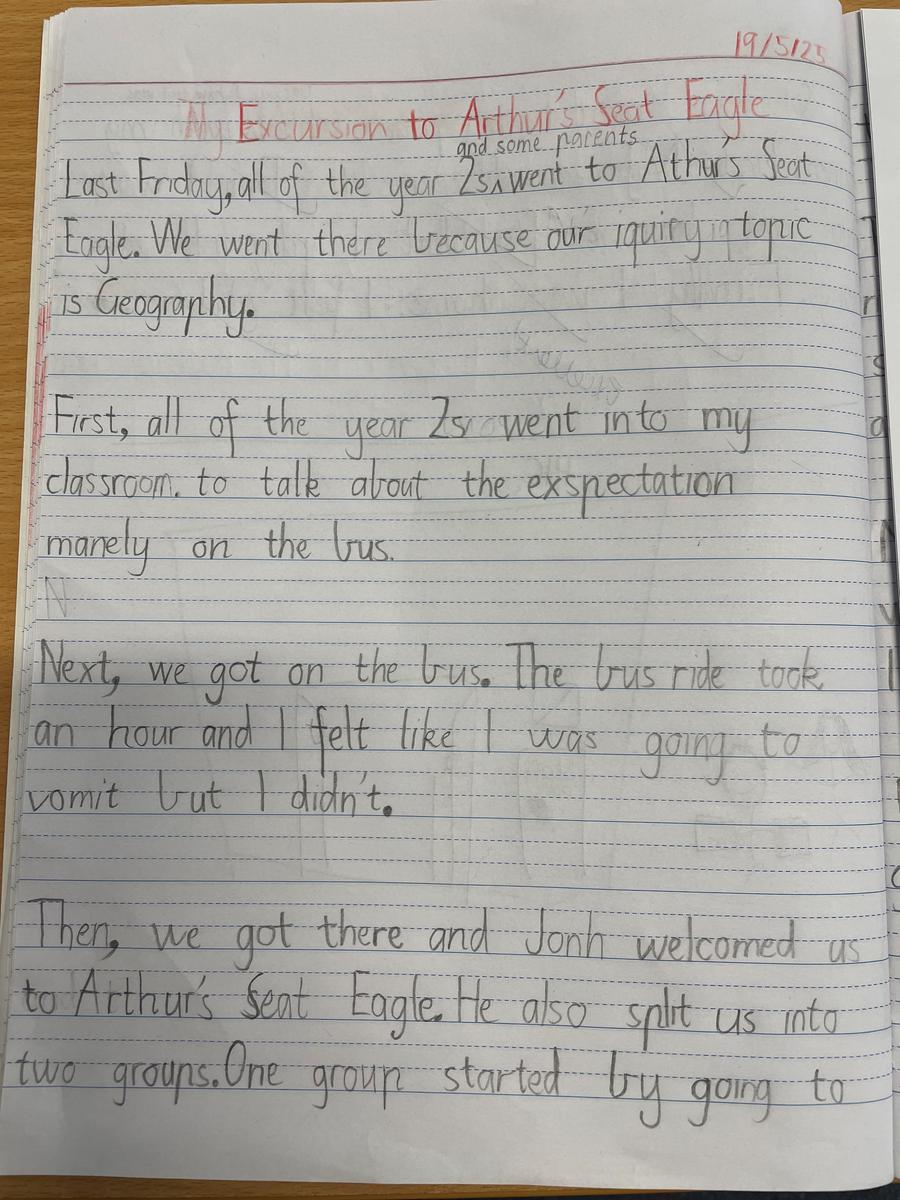 19/5/25
My Excursion to Arthur's Seat Eagle
and some parents
Last Friday, all of the year 2s went to Athur's Seat
Eagle. We went there because our iquiry topic
is Geography.
First, all of the year 2s went into my
classroom. to talk about the exspectation
manely on the bus.
N
Next, we got on the bus. The bus ride took
an hour and I felt like I was going to
vomit but I didn't.
Then, we got there and Jonh welcomed us
to Arthur's Seat Eagle. He also split us into
two groups. One group started by going to